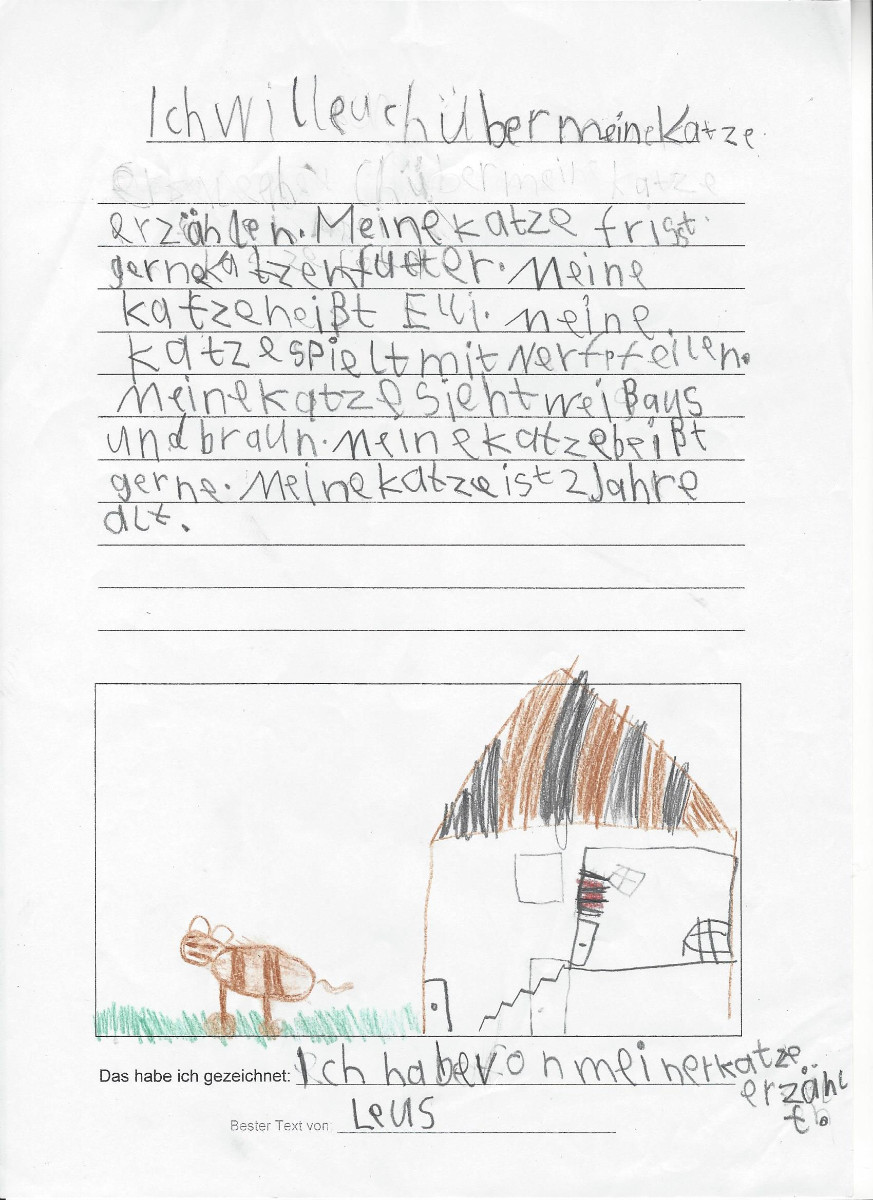 Ich will euch über meine Katze
erzählen. Meine katze frisst
gerne katzenfutter. Meine
katze heißt Elli. meine
katze spielt mit Nerfpfeilen.
Meine katze sieht weiß aus
und braun. Meine katze beißt
gerne. Meine katze ist 2 Jahre
alt.
Das habe ich gezeichnet: Ich habe von meiner katze
erzähl
t.
Bester Text von: Leus